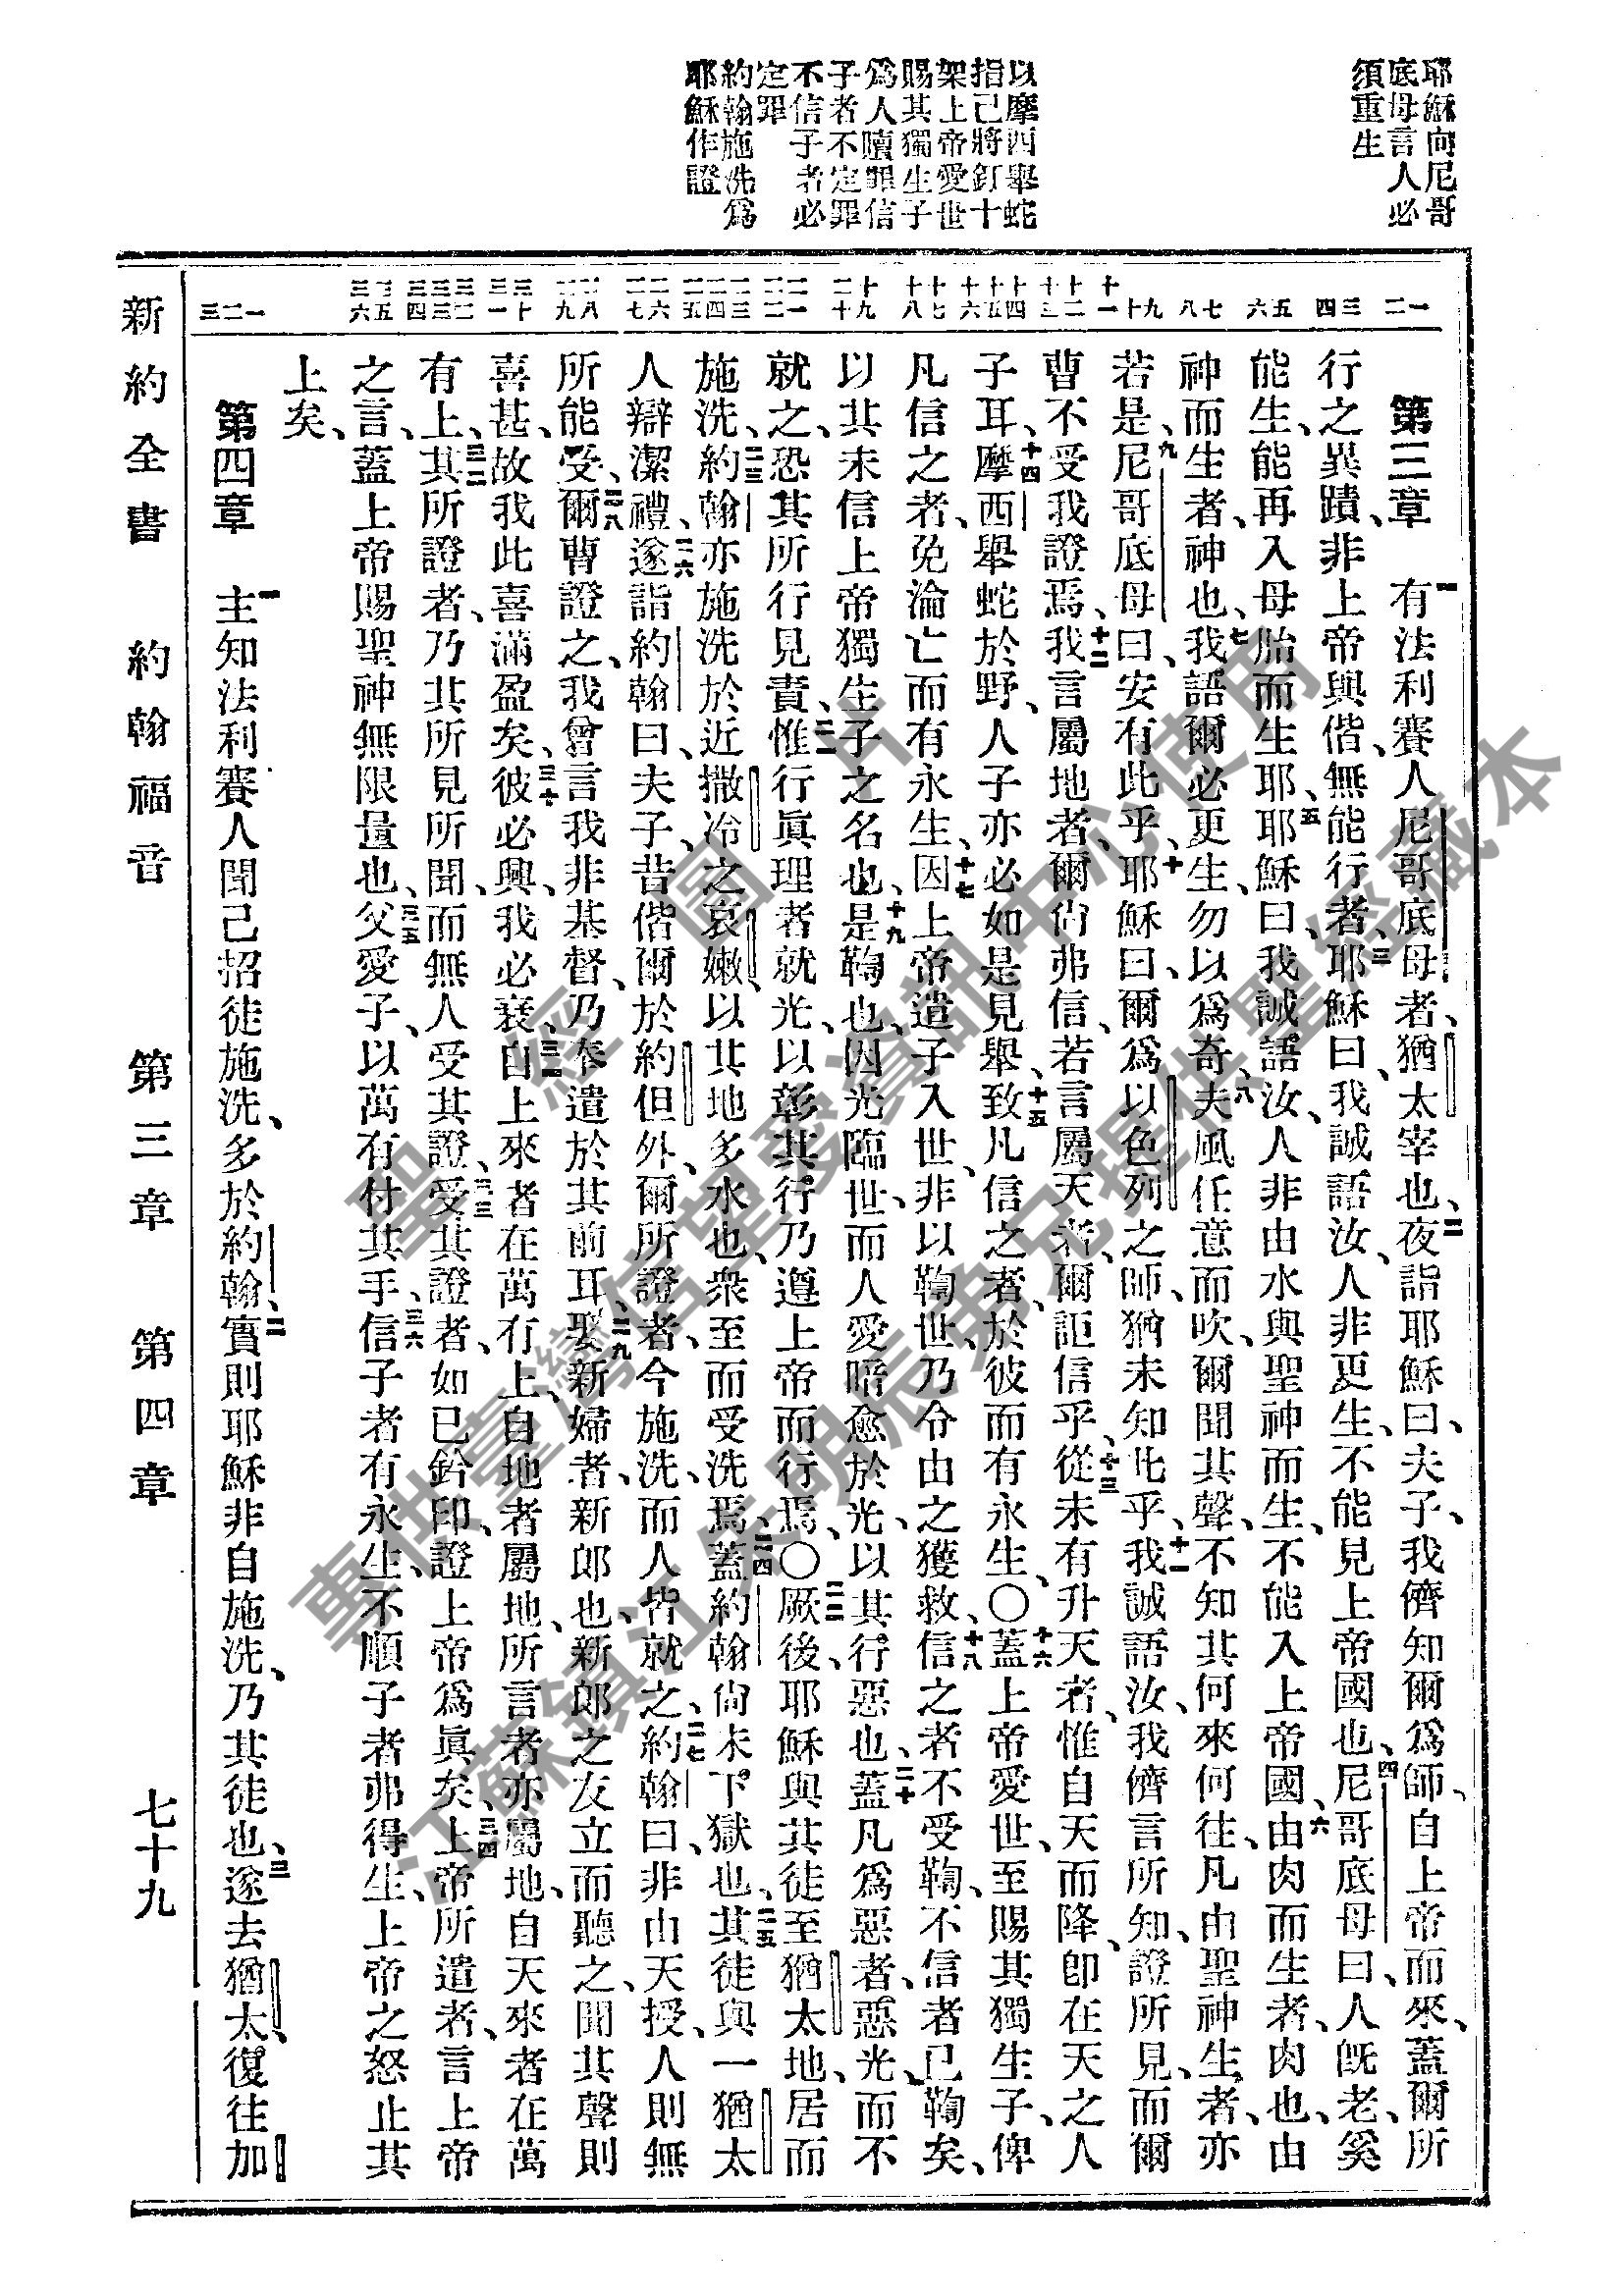 耶穌向尼哥
底母言人必
須重生
以摩西舉蛇
指己將釘十
架上帝愛世
賜其獨生子
爲人贖罪信
子者不定罪
不信子者必
定罪
約翰施洗爲
耶穌作證
一二
三四
五六
七八
九十
十一
十二
十三
十四
十五
十六
十七
十八
十九
二十
二一
二二
二三
二四
二五
二六
二七
二八
二九
三十
三一
三二
三三
三四
三五
三六
一二三
第三章 一有法利賽人尼哥底母者、猶太宰也、二夜詣耶穌曰、夫子、我儕知爾爲師、自上帝而來、蓋爾所
行之異蹟、非上帝與偕、無能行者、三耶穌曰、我誠語汝、人非更生、不能見上帝國也、四尼哥底母曰、人旣老、奚
能生、能再入母胎而生耶、五耶穌曰、我誠語汝、人非由水與聖神而生、不能入上帝國、六由肉而生者、肉也、由
神而生者、神也、七我語爾必更生、勿以爲奇、八夫風任意而吹、爾聞其聲、不知其何來何往、凡由聖神生者、亦
若是、九尼哥底母曰、安有此乎、十耶穌曰、爾爲以色列之師、猶未知此乎、十一我誠語汝、我儕言所知、證所見、而爾
曹不受我證焉、十二我言屬地者、爾尙弗信、若言屬天者、爾詎信乎、十三從未有升天者、惟自天而降、卽在天之人
子耳、十四摩西舉蛇於野、人子亦必如是見舉、十五致凡信之者、於彼而有永生、〇十六蓋上帝愛世、至賜其獨生子、俾
凡信之者、免淪亡而有永生、十七因上帝遣子入世、非以鞫世、乃令由之獲救、十八信之者不受鞫、不信者已鞫矣、
以其未信上帝獨生子之名也、十九是鞫也、因光臨世、而人愛暗愈於光、以其行惡也、二十蓋凡爲惡者、惡光、而不
就之、恐其所行見責、二一惟行眞理者就光、以彰其行、乃遵上帝而行焉、〇二二厥後、耶穌與其徒至猶太地、居而
施洗、二三約翰亦施洗於近撒冷之哀嫩、以其地多水也、衆至而受洗焉、二四蓋約翰尙未下獄也、二五其徒與一猶太
人辯潔禮、二六遂詣約翰曰、夫子、昔偕爾於約但外、爾所證者、今施洗、而人皆就之、二七約翰曰、非由天授、人則無
所能受、二八爾曹證之、我曾言我非基督、乃奉遣於其前耳、二九娶新婦者、新郎也、新郎之友立而聽之、聞其聲則
喜甚、故我此喜滿盈矣、三十彼必興、我必衰、三一自上來者在萬有上、自地者屬地、所言者亦屬地、自天來者在萬
有上、三二其所證者、乃其所見所聞、而無人受其證、三三受其證者、如已鈐印、證上帝爲眞矣、三四上帝所遣者、言上帝
之言、蓋上帝賜聖神無限量也、三五父愛子、以萬有付其手、三六信子者有永生、不順子者弗得生、上帝之怒止其
上矣、
第四章 一主知法利賽人聞己招徒施洗、多於約翰、二實則耶穌非自施洗、乃其徒也、三遂去猶太、復往加
新約全書 約翰福音 第三章 第四章 七十九
聖經圖片
專供臺灣信望愛資訊中心使用
江蘇鎮江朱明辰弟兄提供聖經藏本